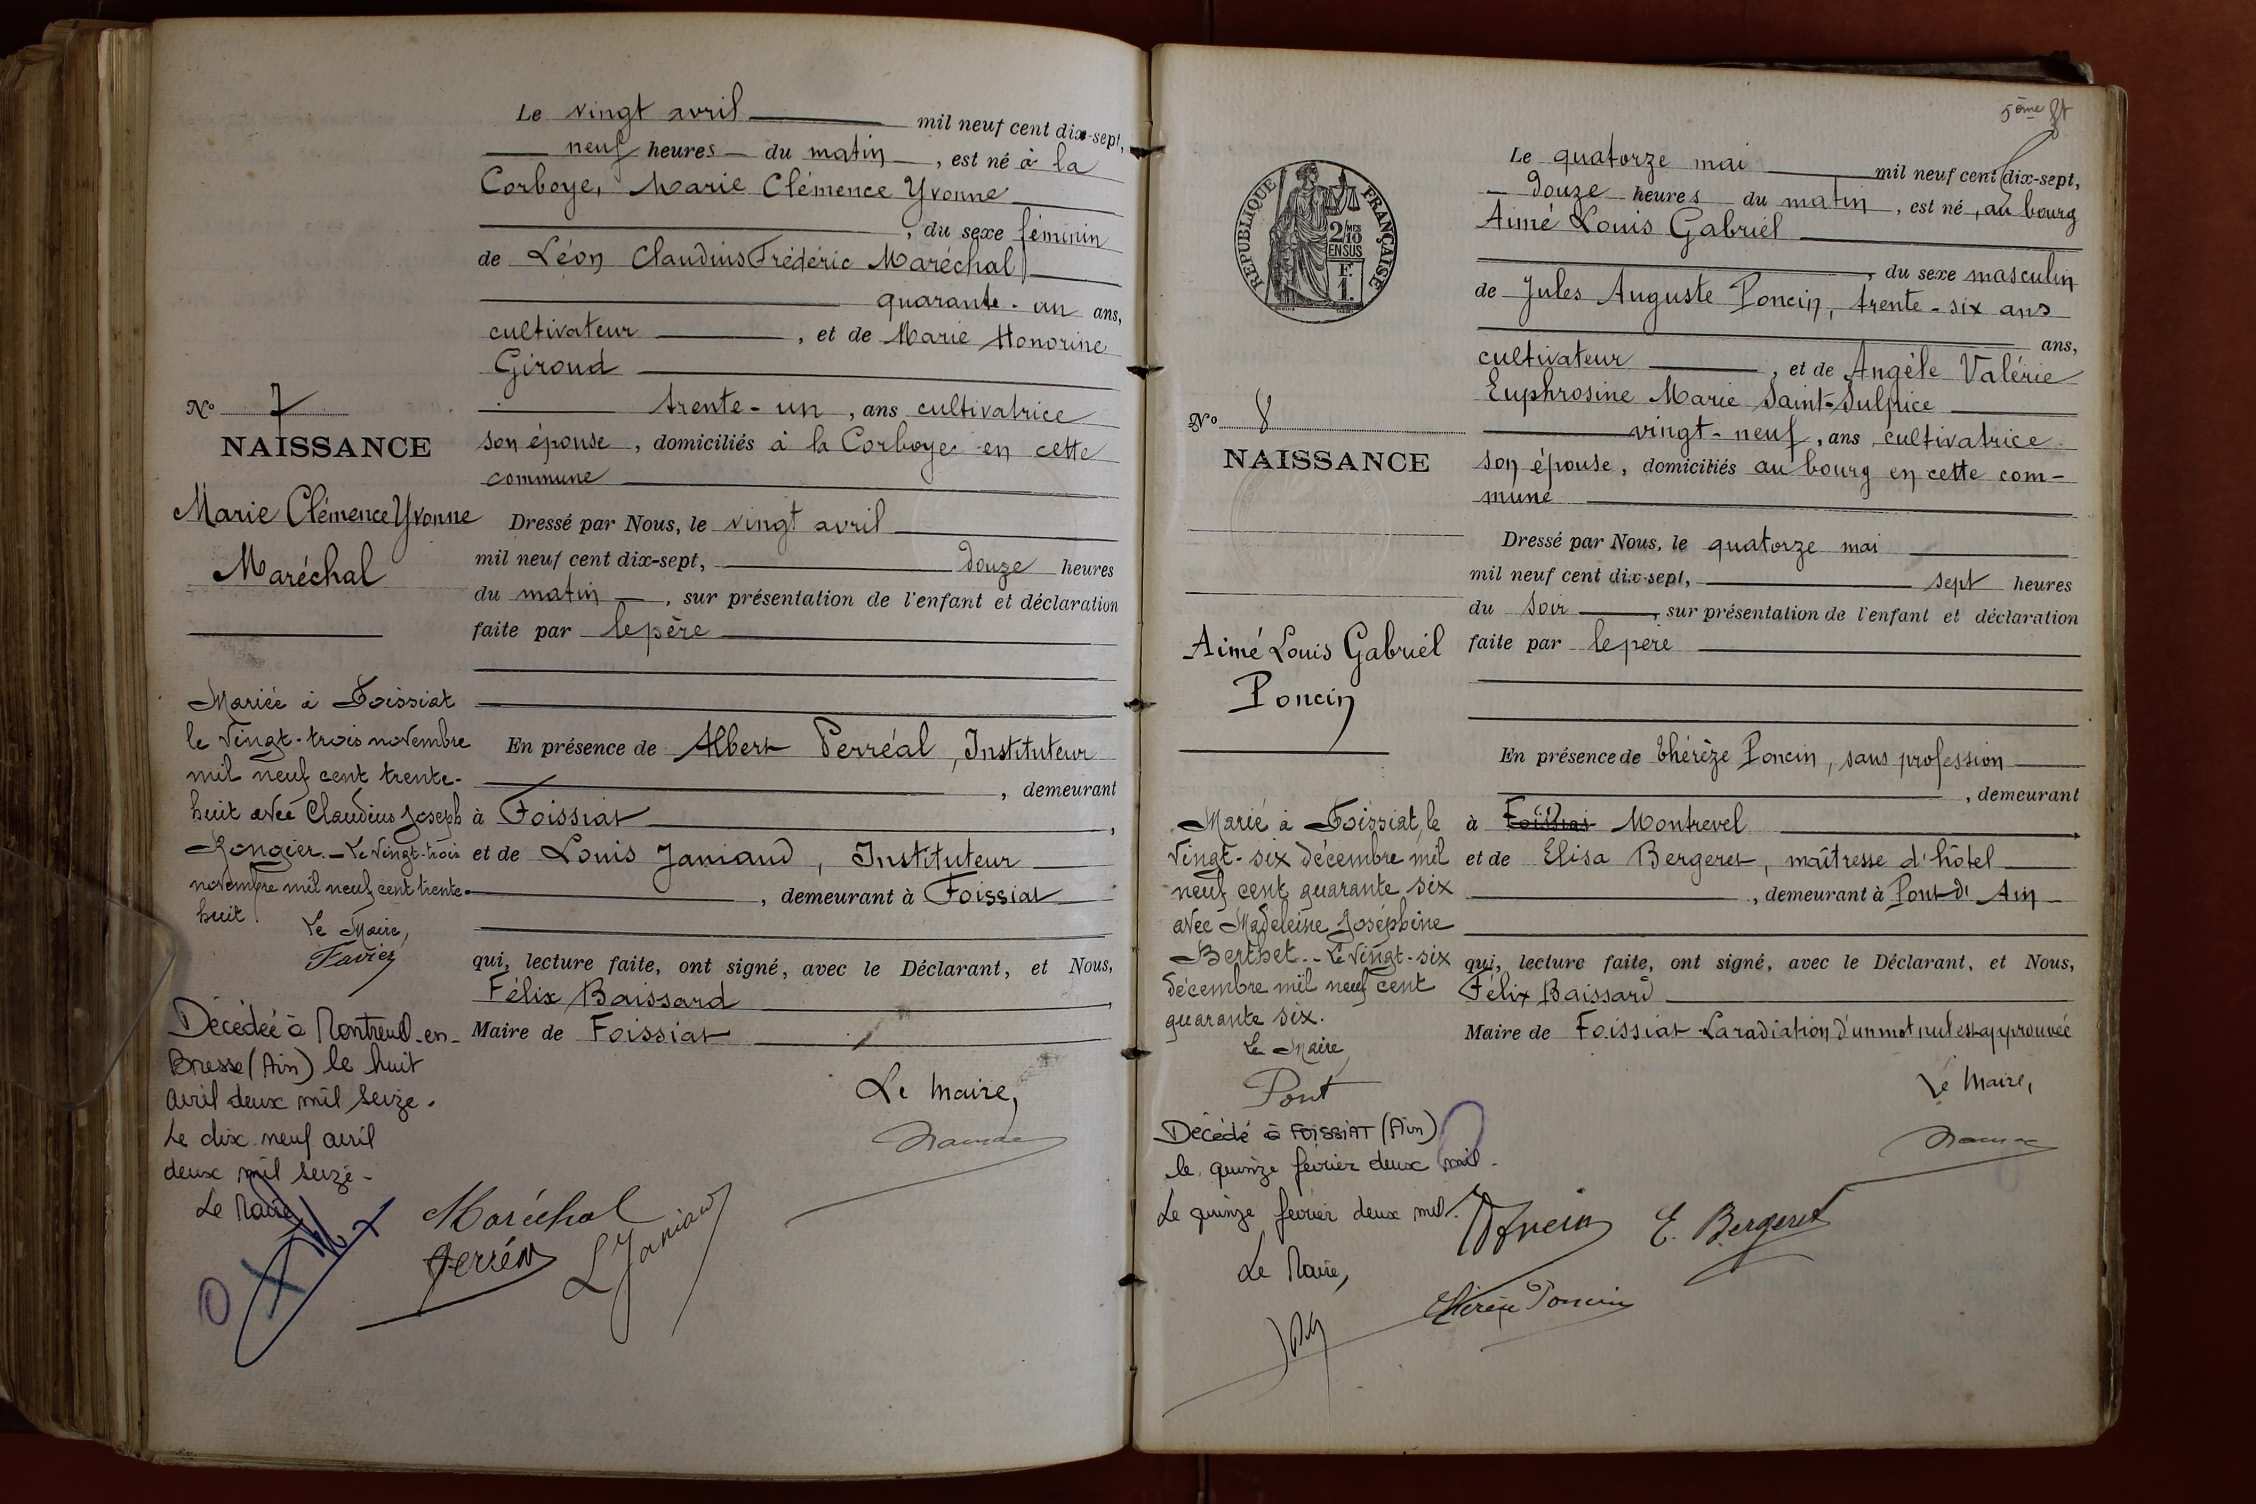 Le vingt avril mil neuf cent dix-sept,
neuf heures du matin, est né à la
Corboye, Marie Clémence Yvonne
, du sexe féminin
de Léon Claudius Frédéric Maréchal
quarante-un ans,
cultivateur, et de Marie Honorine
Giroud
trente-un, ans cultivatrice
son épouse, domiciliés à la Corboye en cette
commune
Dressé par Nous, le vingt avril
mil neuf cent dix-sept, douze heures
du matin, sur présentation de l'enfant et déclaration
faite par le père
En présence de Albert Perréal, Instituteur
, demeurant
à Foissiat,
et de Louis Janiaud, Instituteur
, demeurant à Foissiat
qui, lecture faite, ont signé, avec le Déclarant, et Nous,
Félix Baissard,
Maire de Foissiat
Le Maire,
Maréchal
Perréal
L Janiaud
No 7
NAISSANCE
Marie Clémence Yvonne
Maréchal
Mariée à Foissiat
le vingt-trois novembre
mil neuf cent trente-
huit avec Claudius Joseph
Rongier. - Le vingt-trois
novembre mil neuf cent trente-
huit.
Le Maire,
Favier
Décédée à Montreuil-en-
Bresse (Ain) le huit
avril deux mil seize.
Le dix neuf avril
deux mil seize -
Le Maire
5ème ft
Le quatorze mai mil neuf cent dix-sept,
douze heures du matin, est né, au bourg
Aimé Louis Gabriel
, du sexe masculin
de Jules Auguste Poncin, trente-six ans
ans,
cultivateur, et de Angèle Valérie
Euphrosine Marie Saint-Sulpice
vingt-neuf, ans cultivatrice
son épouse, domiciliés au bourg en cette com-
mune
Dressé par Nous, le quatorze mai
mil neuf cent dix-sept, sept heures
du soir, sur présentation de l'enfant et déclaration
faite par le père
En présence de Thérèze Poncin, sans profession
, demeurant
à Foissiat Montrevel
et de Elisa Bergeret, maîtresse d'hôtel
, demeurant à Pont d'Ain
qui, lecture faite, ont signé, avec le Déclarant, et Nous,
Félix Baissard
Maire de Foissiat La radiation d'un mot nul est approuvée
Le Maire,
Poncin
E. Bergeret
Thérèze Poncin
RÉPUBLIQUE FRANÇAISE
2/10 MES
EN SUS
F.
1.
No 8
NAISSANCE
Aimé Louis Gabriel
Poncin
Marié à Foissiat, le
vingt-six décembre mil
neuf cent quarante six
avec Madeleine Joséphine
Berthet. - Le vingt-six
décembre mil neuf cent
quarante six.
Le Maire
Pont
Décédé à FOISSIAT (Ain)
le quinze février deux mil -
Le quinze février deux mil.
Le Maire,